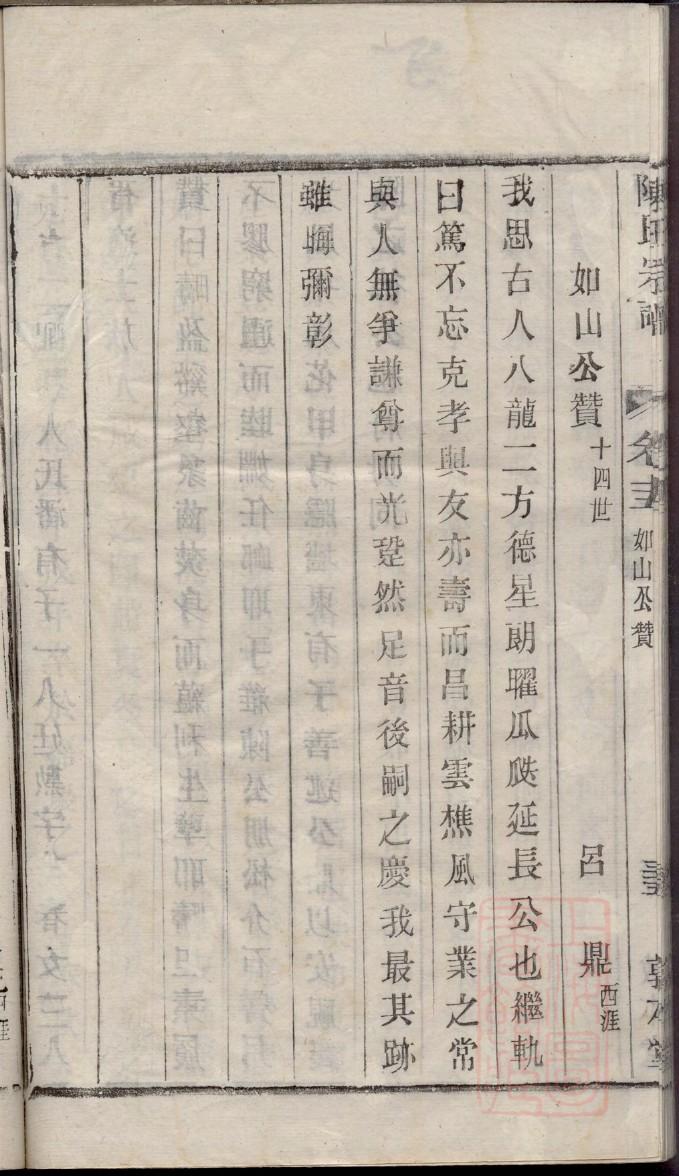 陳氏宗譜
如山公贊
敦本堂
如山公贊 十四世 呂鼎 西涯
我思古人八龍二方德星朗曜瓜瓞延長公也繼軌
曰篤不忘克孝與友亦壽而昌耕雲樵風守業之常
與人無爭謙尊而光跫然足音後嗣之慶我最其跡
雖晦彌彰